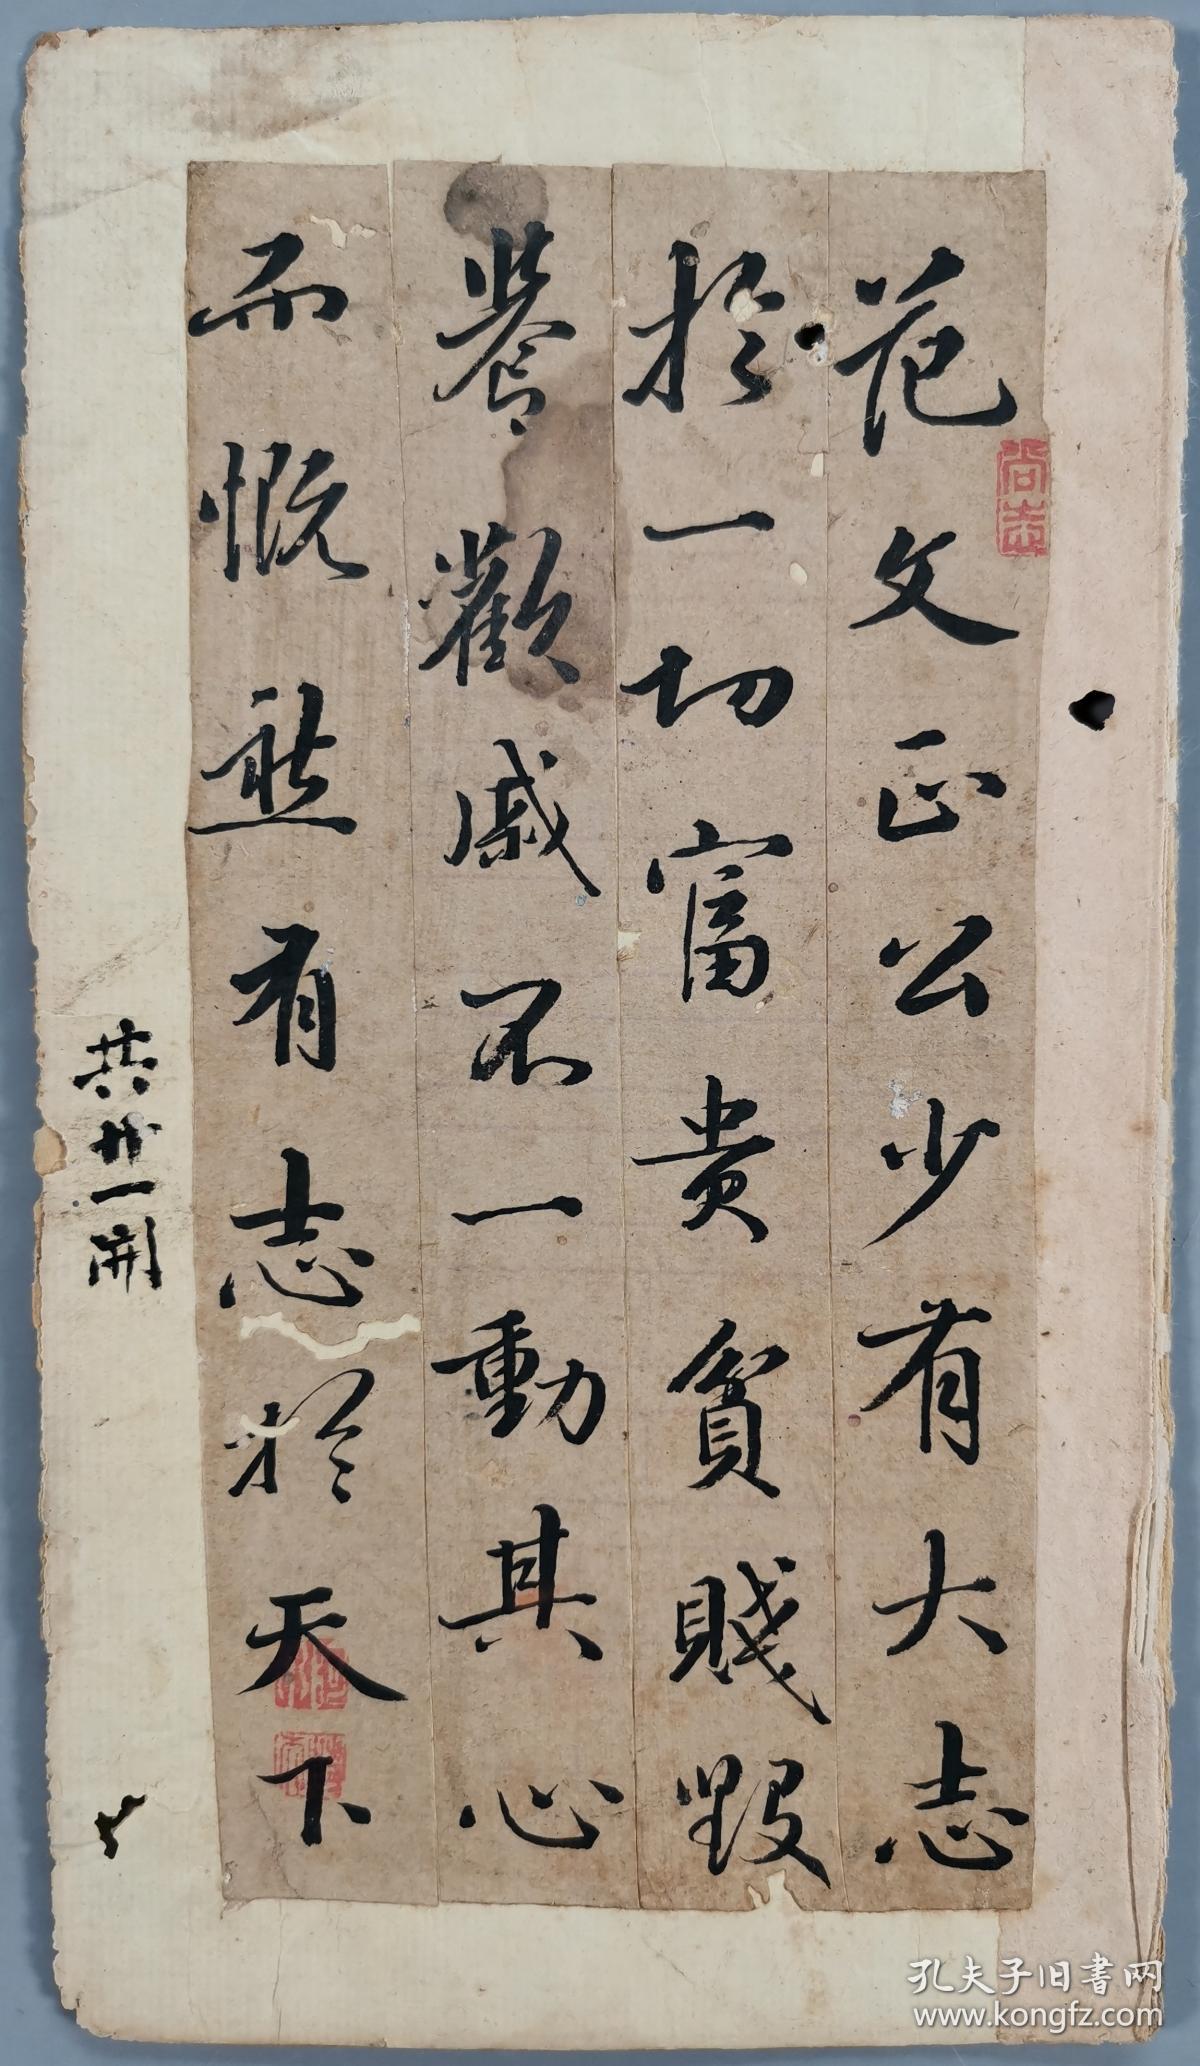 范文正公少有大志
於一切富貴貧賤毀
譽歡戚不一動其心
而慨然有志於天下
尚志
共廿一開
孔夫子旧书网
www.kongfz.com